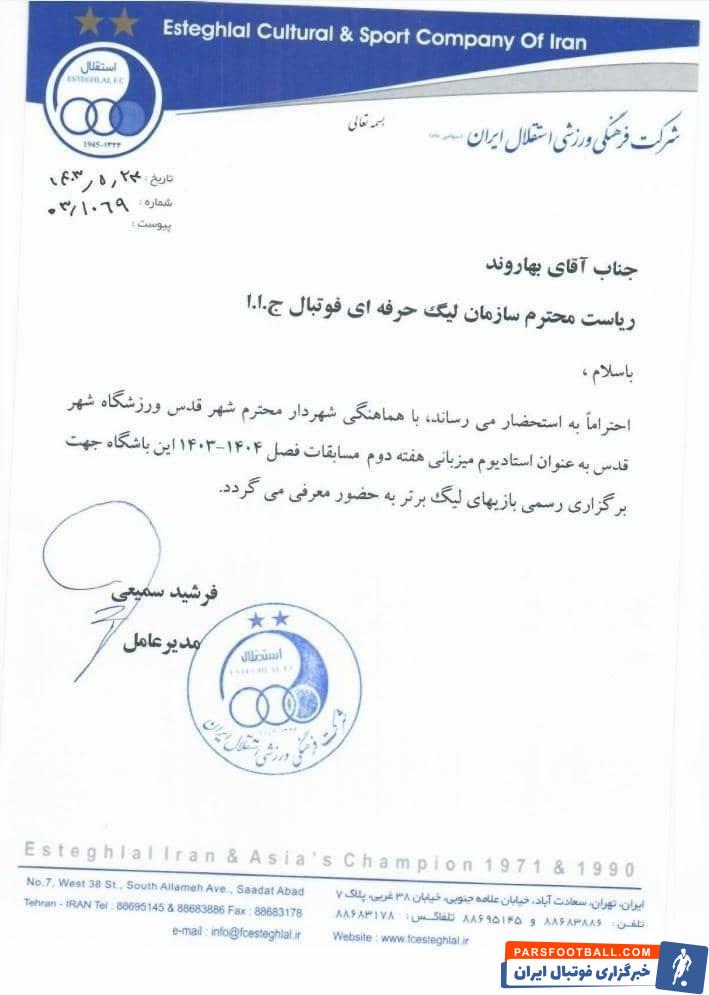 Esteghlal Cultural & Sport Company Of Iran
استقلال
ESTEGHLAL F.C
1945-۱۳۲۴
بسمه تعالی
شرکت فرهنگی ورزشی استقلال ایران (سهامی عام)
تاریخ: ۱۴۰۳/۵/۲۴
شماره: ۰۳/۱۰۶۹
پیوست:
جناب آقای بهاروند
ریاست محترم سازمان لیگ حرفه ای فوتبال ج.ا.ا
باسلام ،
احتراماً به استحضار می رساند، با هماهنگی شهردار محترم شهر قدس ورزشگاه شهر
قدس به عنوان استادیوم میزبانی هفته دوم مسابقات فصل ۱۴۰۴-۱۴۰۳ این باشگاه جهت
برگزاری رسمی بازیهای لیگ برتر به حضور معرفی می گردد.
فرشید سمیعی
مدیرعامل
استقلال
ESTEGHLAL F.C
شرکت فرهنگی ورزشی استقلال ایران
Esteghlal Iran & Asia's Champion 1971 & 1990
No.7, West 38 St., South Allameh Ave., Saadat Abad
Tehran - IRAN Tel : 88695145 & 88683886 Fax : 88683178
e-mail : info@fcesteghlal.ir
ایران، تهران، سعادت آباد، خیابان علامه جنوبی، خیابان ۳۸ غربی، پلاک ۷
تلفن: ۸۸۶۸۳۸۸۶ و ۸۸۶۹۵۱۴۵ تلفاکس: ۸۸۶۸۳۱۷۸
Website : www.fcesteghlal.ir
PARSFOOTBALL.COM
خبرگزاری فوتبال ایران